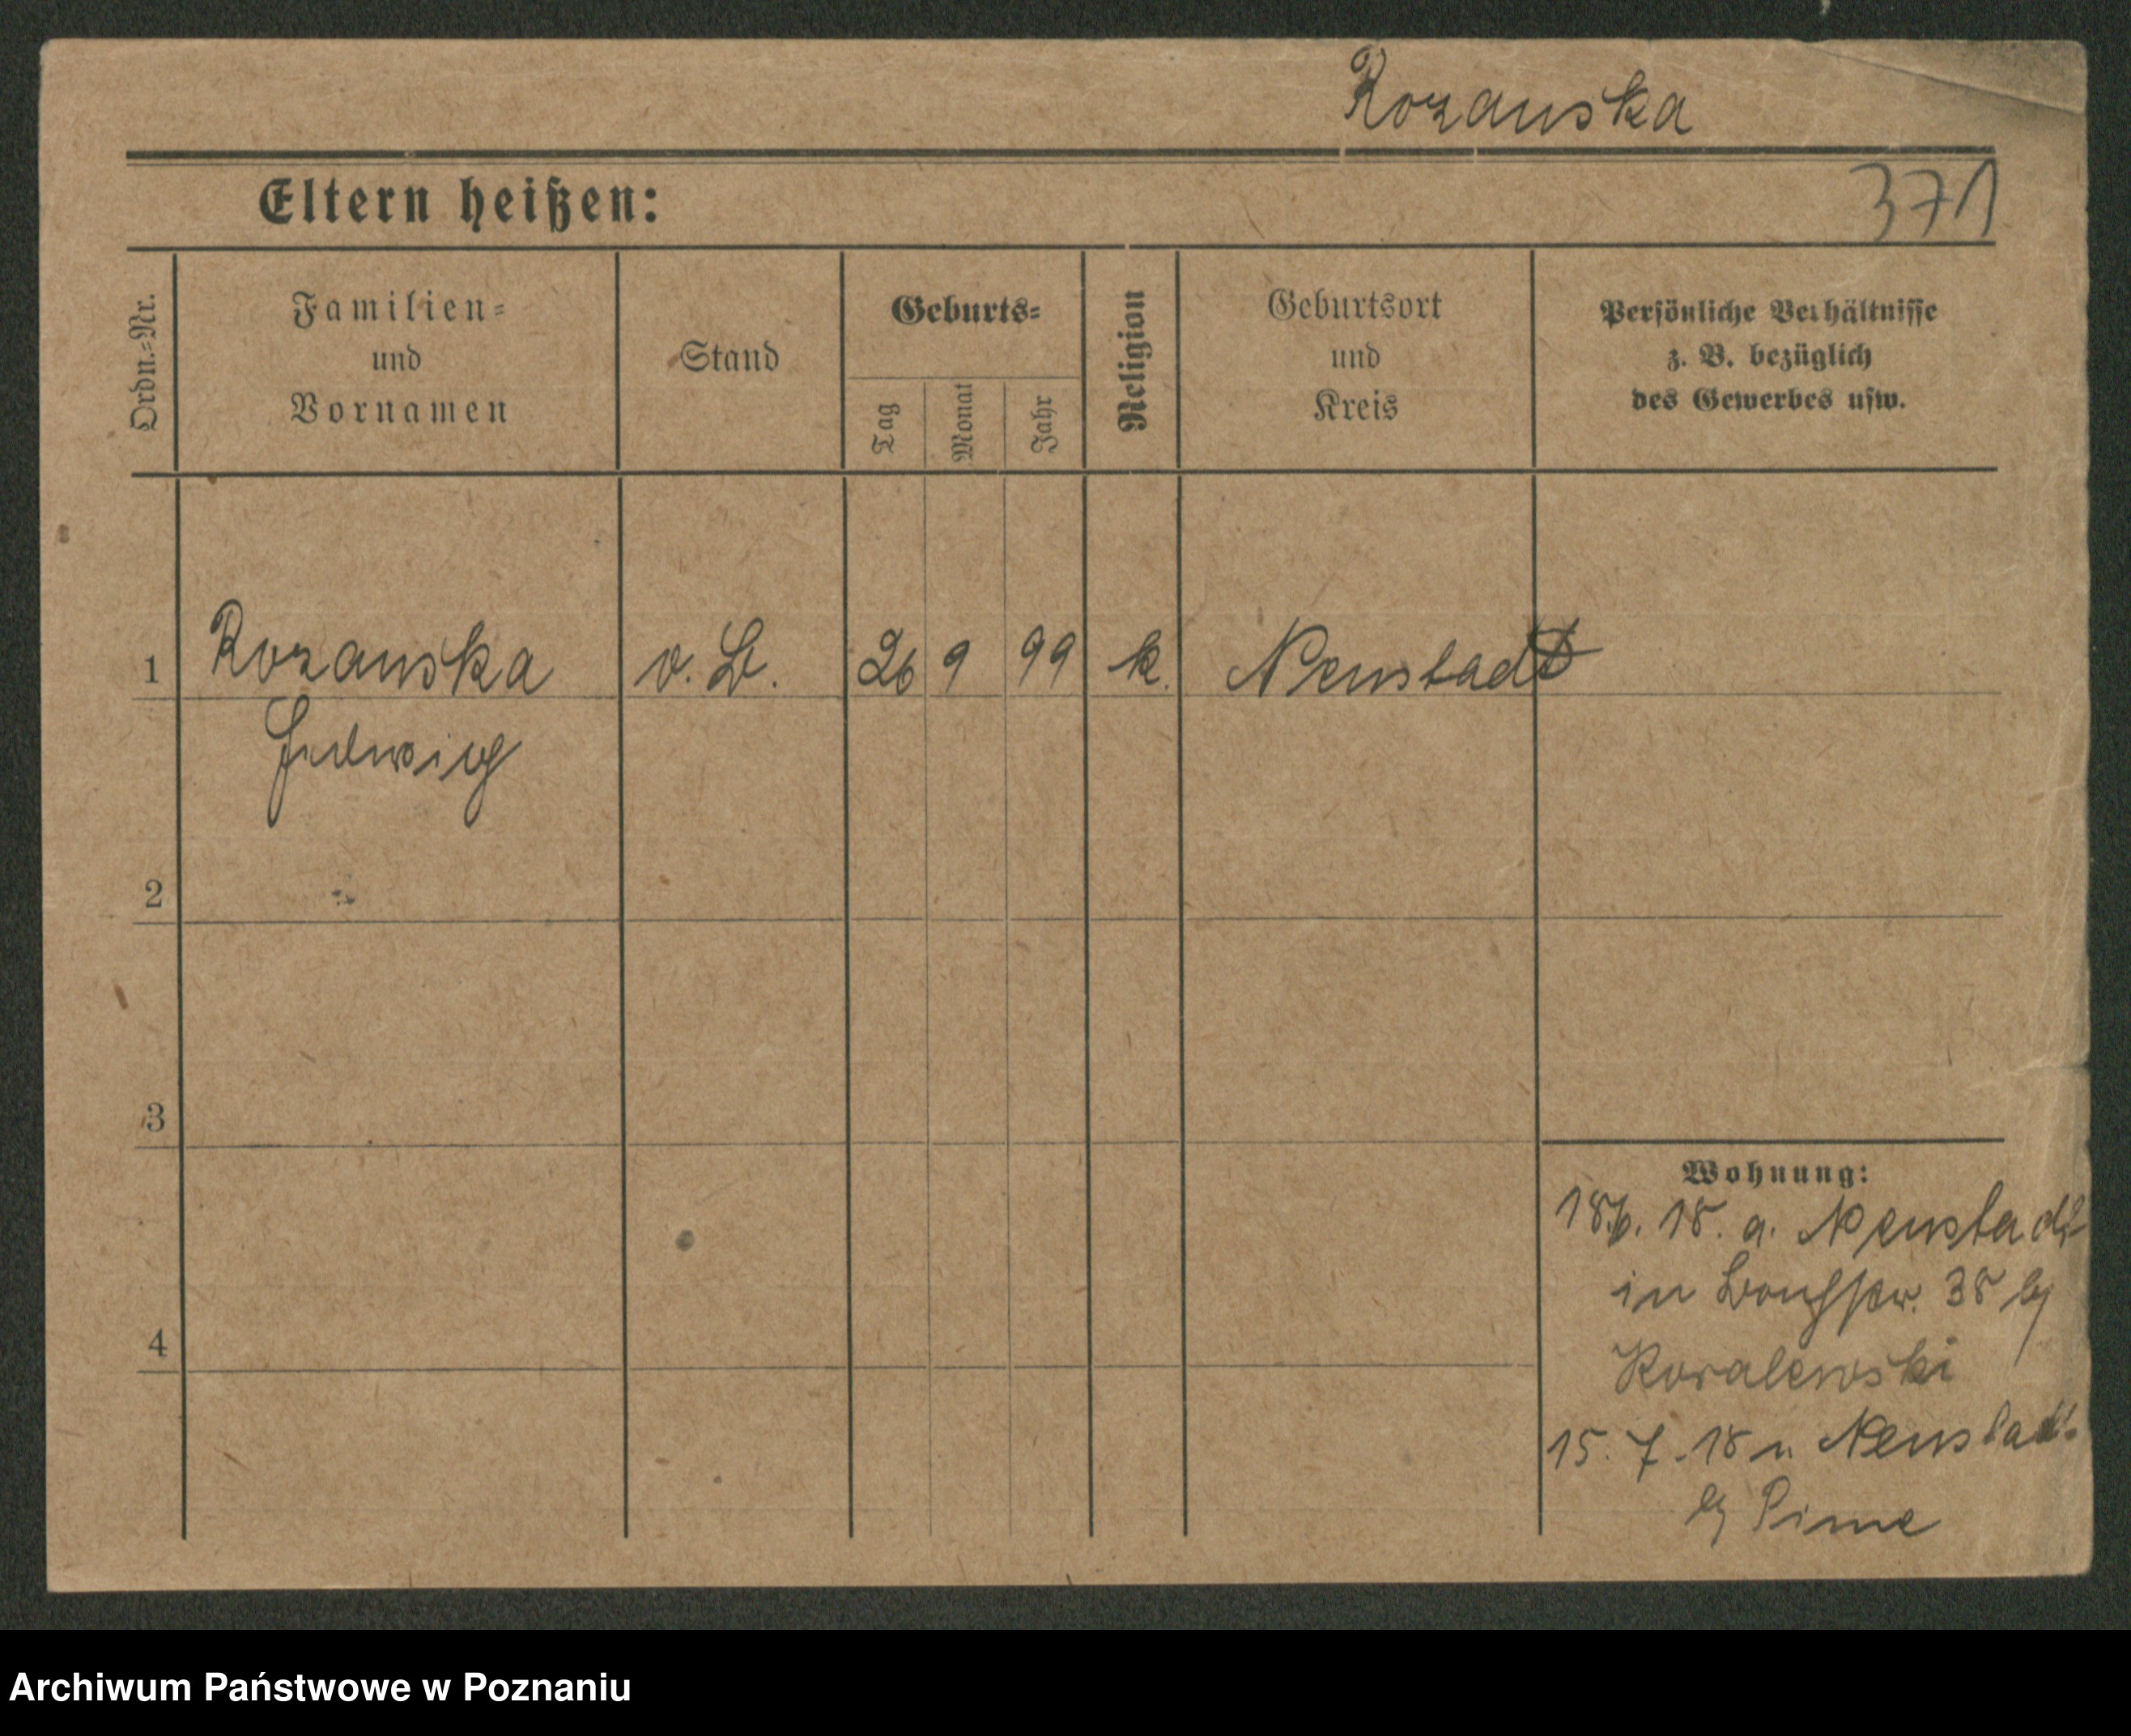 Rozanska
Eltern heißen:
371
Ordn.-Nr.
Familien-
und
Vornamen
Stand
Geburts-
Tag
Monat
Jahr
Religion
Geburtsort
und
Kreis
Persönliche Verhältnisse
z. B. bezüglich
des Gewerbes usw.
1 Rozanska 26 9 99 k. Neustadt
Hedwig
2
3
4
Wohnung:
18.6.18. a. Neustadt
in 38 bj
Koralewski
15.7.18 n Neustadt
bj Pinne
Archiwum Państwowe w Poznaniu